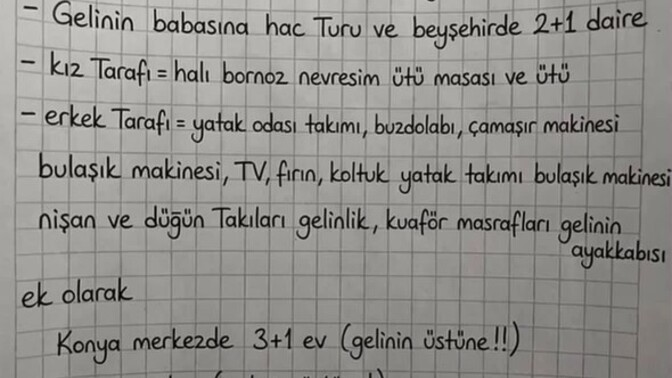 - Gelinin babasına hac Turu ve beyşehirde 2+1 daire
- kız Tarafı = halı bornoz nevresim ütü masası ve ütü
- erkek Tarafı = yatak odası takımı, buzdolabı, çamaşır makinesi
bulaşık makinesi, TV, fırın, koltuk yatak takımı bulaşık makinesi
nişan ve düğün Takıları gelinlik, kuaför masrafları gelinin
ayakkabısı
ek olarak
Konya merkezde 3+1 ev (gelinin üstüne!!)